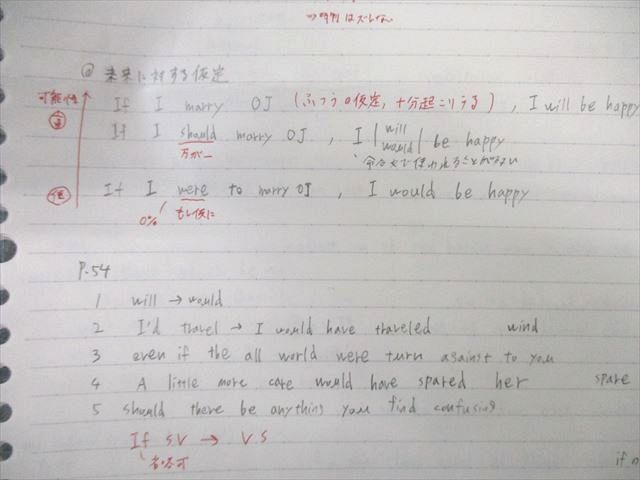 ⇒時制はズレない
@ 未来に対する仮定
可能性
高
If I marry OJ (ふつうの仮定, 十分起こりうる), I will be happy
If I should marry OJ, I | will would | be happy
万が一
低
If I were to marry OJ, I would be happy
0% もし仮に
P.54
1 will → would
2 I'd travel → I would have traveled wind
3 even if the all world were turn against to you
4 A little more care would have spared her spare
5 should there be anything you find confusing
If SV → VS
省略可
if